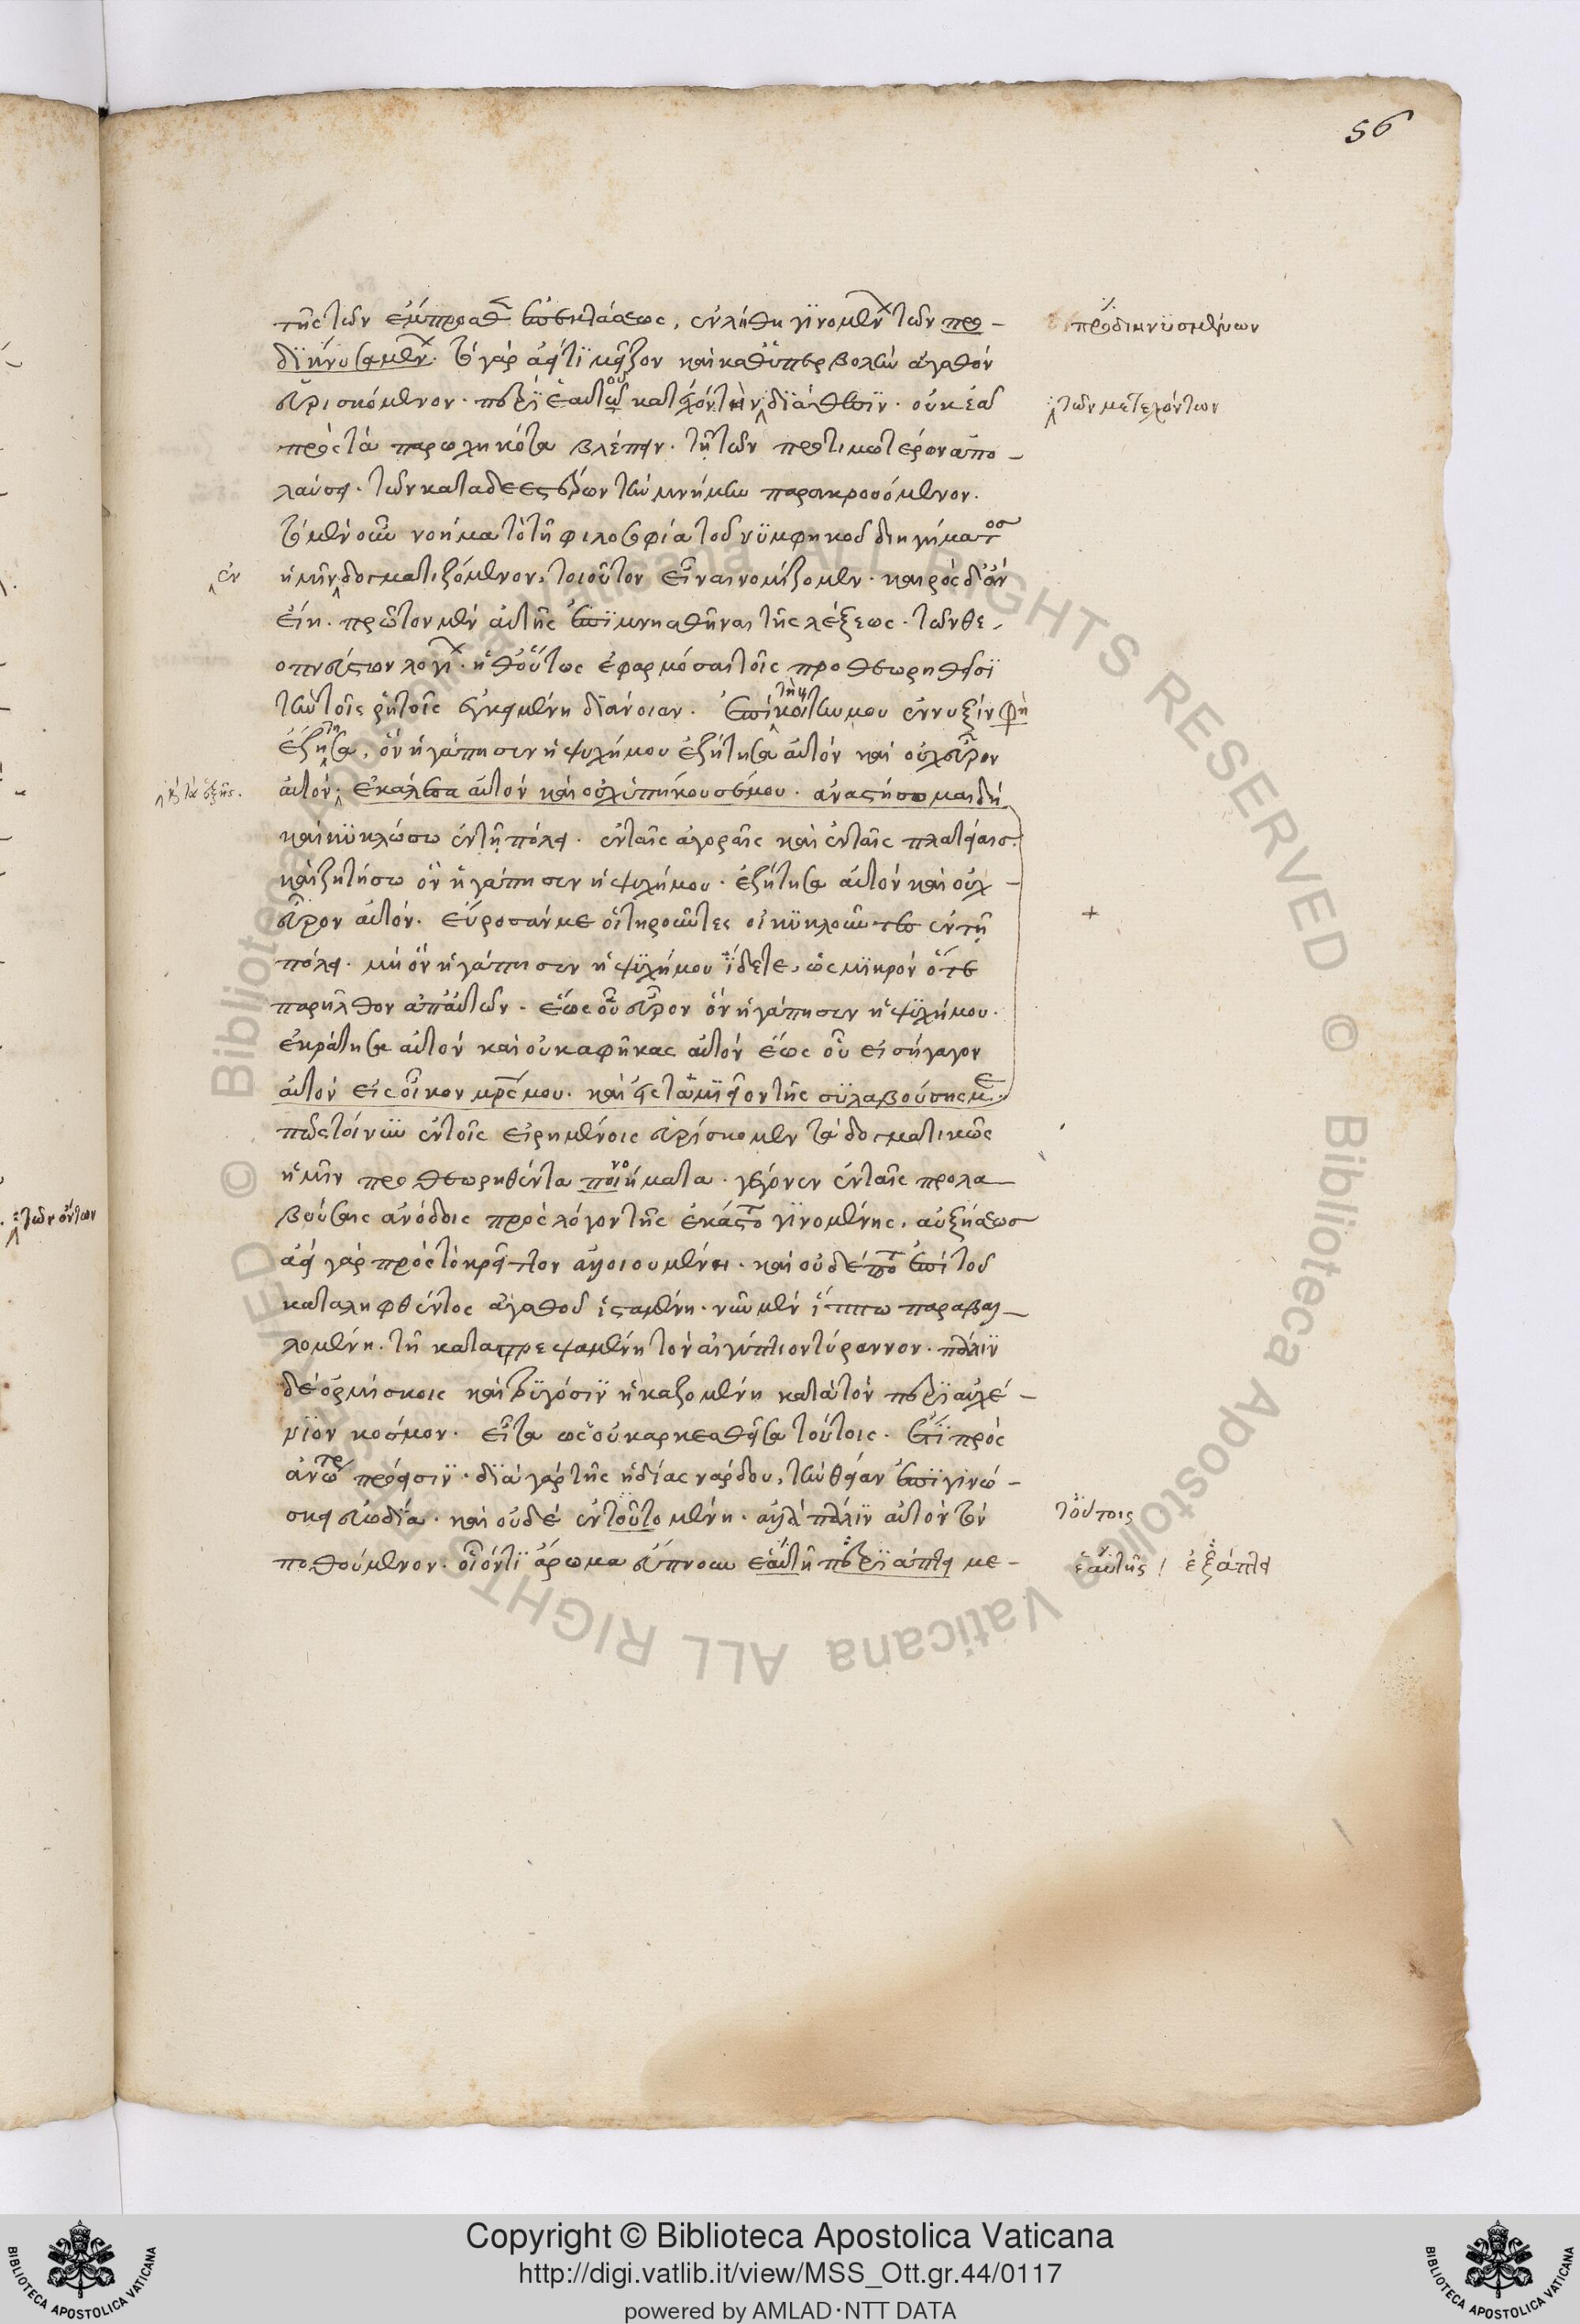 56
τῆς τῶν ἔμπροσθεν ἐπεκτάσεως, ἐν λήθῃ γινομένη τῶν προ-
προδιηνυσμένων
διηνυσμένων. τὸ γὰρ ἀεὶ τϊ μεῖζον καὶ καθ' ὑπερβολὴν ἀγαθὸν
εὑρισκόμενον. περϊ ἑαυτῶ κατέχον τὴν διάθεσϊν. οὐκ ἐᾶ
τῶν μετεχόντων
πρὸς τὰ παρωχηκότα βλέπειν. τῇ τῶν προτιμωτέρων ἀπο-
λαύσει. τῶν καταδεεστέρων τὴν μνήμην παρακρουόμενον.
τὸ μὲν οὖν νόημα τὸ τῇ φιλοσοφίᾳ τοῦ νϋμφικοῦ διηγήματος
ἐν
ἡμῖν δογματιζόμενον, τοιοῦτον εἶναι νομίζομεν. καιρὸς δ' ἂν
εἴη. πρῶτον μὲν αὐτῆς ἐπϊμνησθῆναι τῆς λέξεως. τῶν θε
οπνεύστων λογίων. εἶθ' οὕτως ἐφαρμόσαι τοῖς προθεωρηθεῖσϊ
τὴν τοῖς ῥητοῖς ἐγκειμένην διάνοιαν. ἐπὶ κοίτην μου ἐν νυξίν φη
ἐζήτησα, ὃν ἠγάπησεν ἡ ψυχή μου ἐζήτησα αὐτὸν καὶ οὐχ εὗρον
κ τὰ ἑξῆς.
αὐτόν. ἐκάλεσα αὐτὸν καὶ οὐχ ὑπήκουσέ μου. ἀναστήσομαι δὴ
καὶ κϋκλώσω ἐν τῇ πόλει. ἐν ταῖς ἀγοραῖς καὶ ἐν ταῖς πλατείαις.
καὶ ζητήσω ὃν ἠγάπησεν ἡ ψυχή μου. ἐζήτησα αὐτὸν καὶ οὐχ
εὗρον αὐτόν. εὕροσάν με οἱ τηροῦντες οἱ κϋκλοῦντες ἐν τῇ
+
πόλει. μὴ ὃν ἠγάπησεν ἡ ψϋχή μου ϊδετε, ὡς μϊκρὸν ὅτε
παρῆλθον ἀπ' αὐτῶν. ἕως οὗ εὗρον ὃν ἠγάπησεν ἡ ψϋχή μου.
ἐκράτησα αὐτὸν καὶ οὐκ ἀφῆκας αὐτὸν ἕως οὗ εἰσήγαγον
αὐτὸν εἰς οἶκον μρς μου. καὶ εἰς ταμϊεῖον τῆς συλλαβούσης με.
πῶς τοίνϋν ἐν τοῖς εἰρημένοις εὑρίσκομεν τὰ δογματικῶς
ἡμῖν προθεωρηθέντα ποιήματα. γέγονεν ἐν ταῖς προλα
νο
βούσαις ἀνόδοις πρὸς λόγον τῆς ἑκάστοτε γϊνομένης, αὐξήσεως
τῶν ὄντων
ἀεὶ γὰρ πρὸς τὸ κρεῖττον ἀλλοιουμένη. καὶ οὐδέποτε ἐπὶ τοῦ
καταληφθέντος ἀγαθοῦ ἱσταμένη. νῦν μὲν ἵππῳ παραβαλ
λομένη. τῇ καταστρεψαμένῃ τὸν αἰγύπτιον τύραννον. πάλϊν
δὲ ὁρμίσκοις καὶ τρϋγόσϊν εἰκαζομένη κατὰ τὸν περϊαυχέ-
νϊον κόσμον. εἶτα ὡς οὐκ ἀρκεσθεῖσα τούτοις. ἔτϊ πρὸς
ἀνωτέρω πρόεισϊν. διὰ γὰρ τῆς ἡδίας νάρδου, τὴν θείαν ἐπϊγινώ-
σκει εὐωδία. καὶ οὐδὲ ἐν τούτο μένει. ἀλλὰ πάλϊν αὐτὸν τὸν
τούτοις
ποθούμενον. οἷόν τϊ ἄρωμα εὔπνουν ἑαυτῇ περϊάπτει με-
ἑαυτῆς / ἐξάπτει
Copyright © Biblioteca Apostolica Vaticana
http://digi.vatlib.it/view/MSS_Ott.gr.44/0117
powered by AMLAD·NTT DATA